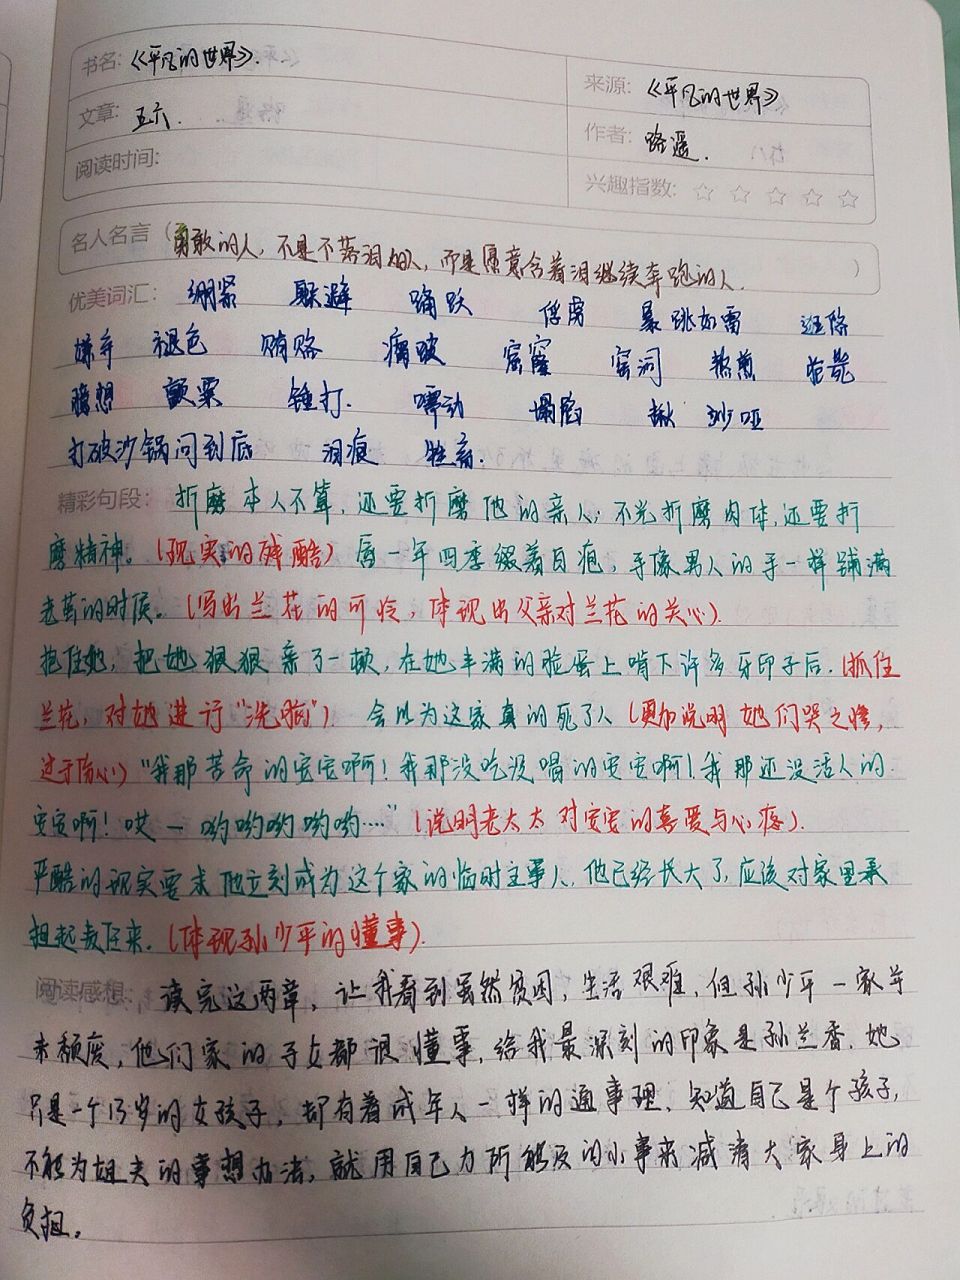 书名: 《平凡的世界》.
来源: 《平凡的世界》
文章: 五六.
作者: 路遥.
阅读时间:
兴趣指数: ☆ ☆ ☆ ☆ ☆
名人名言（勇敢的人，不是不落泪的人，而是愿意含着泪继续奔跑的人. ）
优美词汇: 绷紧 躲避 踊跃 俘虏 暴跳如雷
嫌弃 褪色 贿赂 窑洞 熬煎
臆想 颤栗 锤打. 嚅动 塌陷 锹 沙哑
打破沙锅问到底 泪痕 牲畜.
精彩句段: 折磨本人不算，还要折磨他的亲人；不光折磨肉体，还要折
磨精神。（现实的残酷）唇一年四季缀着白疱，手像男人的手一样铺满
老茧的时候。（写出兰花的可怜，体现出父亲对兰花的关心）.
抱住她，把她狠狠亲了一顿，在她丰满的脸蛋上啃下许多牙印子后.（抓住
兰花，对她进行“洗脑”） 会以为这家真的死了人（更加说明她们哭之惨，
过于伤心）“我那苦命的安安啊！我那没吃没喝的安安啊！我那还没活人的
安安啊！哎一哟哟哟哟哟……”（说明老太太对安安的喜爱与心疼）.
严酷的现实要求他立刻成为这个家的临时主事人，他已经长大了，应该对家里承
担起责任来.（体现孙少平的懂事）.
阅读感想: 读完这两章，让我看到虽然贫困，生活艰难，但孙少平一家并
未颓废，他们家的子女都很懂事，给我最深刻的印象是孙兰香，她
只是一个13岁的女孩子，却有着成年人一样的通事理，知道自己是个孩子，
不能为姐夫的事想办法，就用自己力所能及的小事来减清大家身上的
负担。